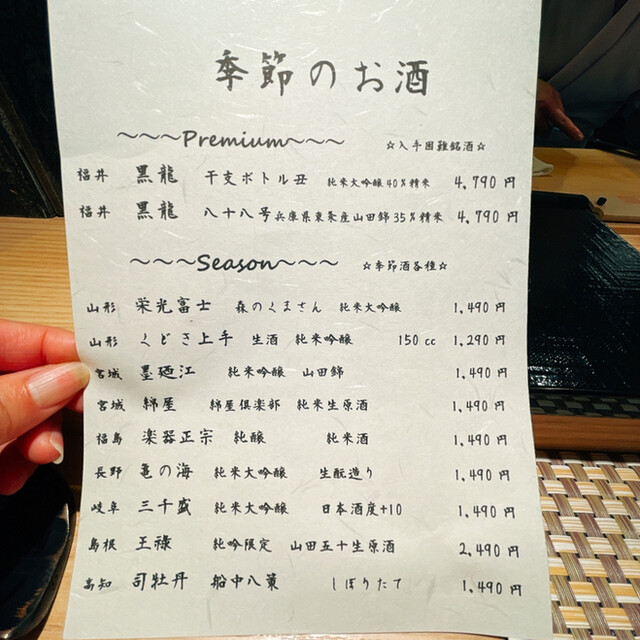 季節のお酒
～～～Premium～～～ ☆入手困難銘酒☆
福井 黒龍 干支ボトル丑 純米大吟醸40%精米 4,790円
福井 黒龍 八十八号兵庫県東条産山田錦35%精米 4,790円
～～～Season～～～ ☆季節酒各種☆
山形 栄光冨士 森のくまさん 純米大吟醸 1,490円
山形 くどき上手 生酒 純米吟醸 150cc 1,290円
宮城 墨廼江 純米吟醸 山田錦 1,490円
宮城 綿屋 綿屋倶楽部 純米生原酒 1,490円
福島 楽器正宗 純醸 純米酒 1,490円
長野 亀の海 純米大吟醸 生酛造り 1,490円
岐阜 三千盛 純米大吟醸 日本酒度+10 1,490円
島根 王祿 純吟限定 山田五十生原酒 2,490円
高知 司牡丹 船中八策 しぼりたて 1,490円